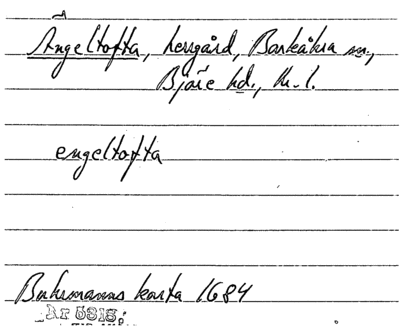 Ängeltofta, herrgård, Barkåkra sn.,
Bjäre hd., Kr. l.
engeltofta
Buhrmanns karta 1684
Nr 5818;